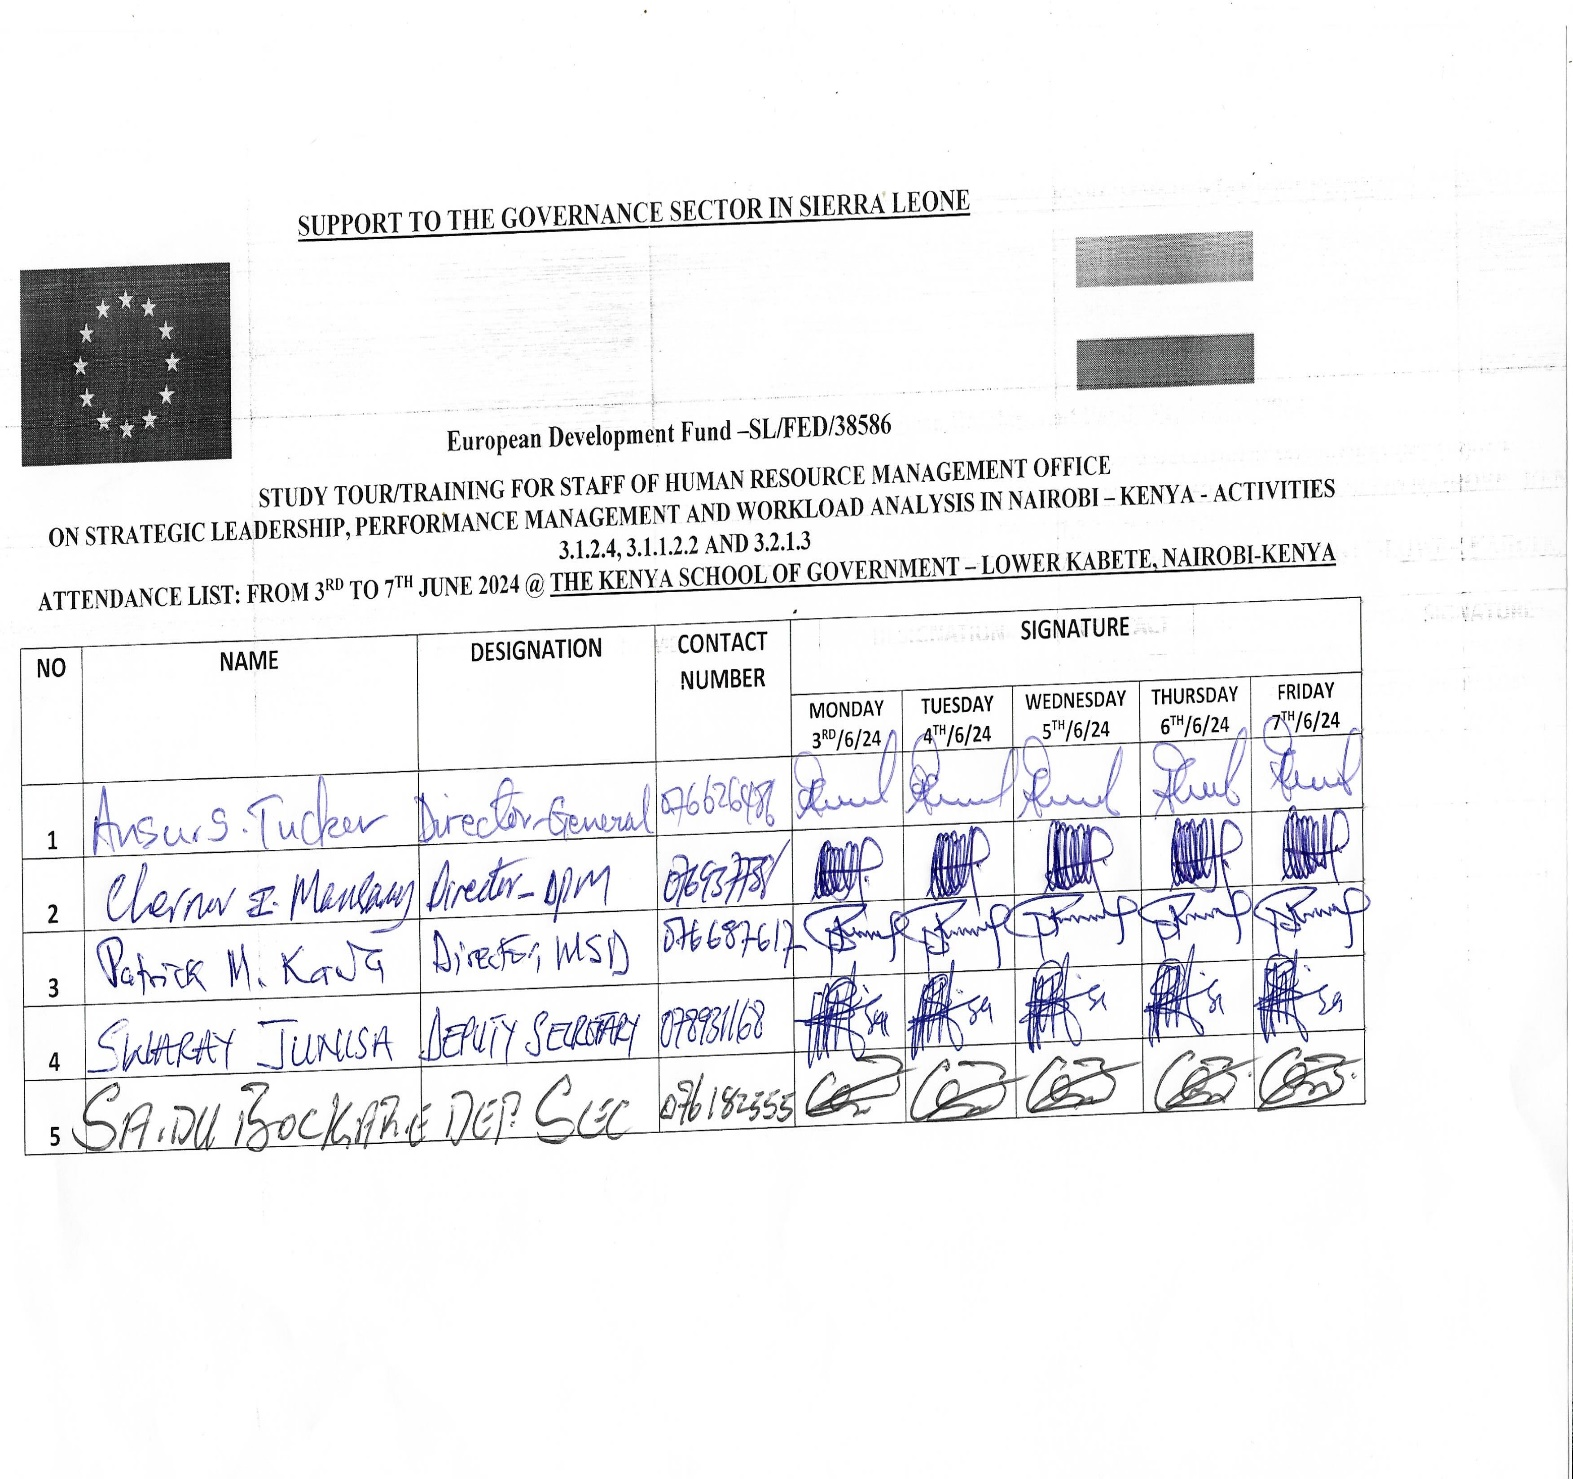 SUPPORT TO THE GOVERNANCE SECTOR IN SIERRA LEONE
European Development Fund –SL/FED/38586
STUDY TOUR/TRAINING FOR STAFF OF HUMAN RESOURCE MANAGEMENT OFFICE
ON STRATEGIC LEADERSHIP, PERFORMANCE MANAGEMENT AND WORKLOAD ANALYSIS IN NAIROBI – KENYA - ACTIVITIES
3.1.2.4, 3.1.1.2.2 AND 3.2.1.3
ATTENDANCE LIST: FROM 3RD TO 7TH JUNE 2024 @ THE KENYA SCHOOL OF GOVERNMENT – LOWER KABETE, NAIROBI-KENYA
NO NAME DESIGNATION CONTACT NUMBER SIGNATURE
MONDAY 3RD/6/24 TUESDAY 4TH/6/24 WEDNESDAY 5TH/6/24 THURSDAY 6TH/6/24 FRIDAY 7TH/6/24
1 Ansu S. Tucker Director-General
2 Director-
3 Patrick M. Director, MSD 076687617
4 SWARAY JUNISA DEPUTY SECRETARY 078931168
5 SAIDU BOCKARIE DEP. SEC 076182555